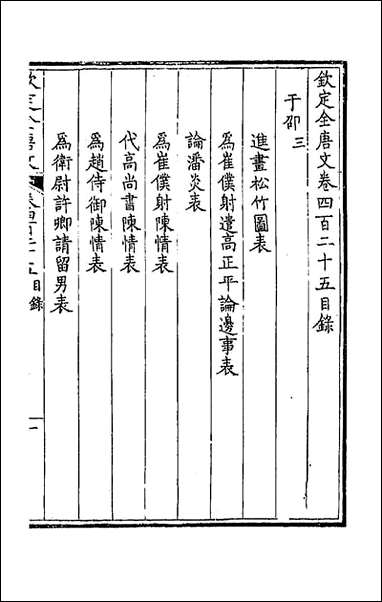 欽定全唐文卷四百二十五目錄
于邵三
進畫松竹圖表
爲崔僕射遣高正平論邊事表
論潘炎表
爲崔僕射陳情表
代高尚書陳情表
爲趙侍御陳情表
爲衛尉許卿請留男表
欽定全唐文 卷四百二十五目錄 一